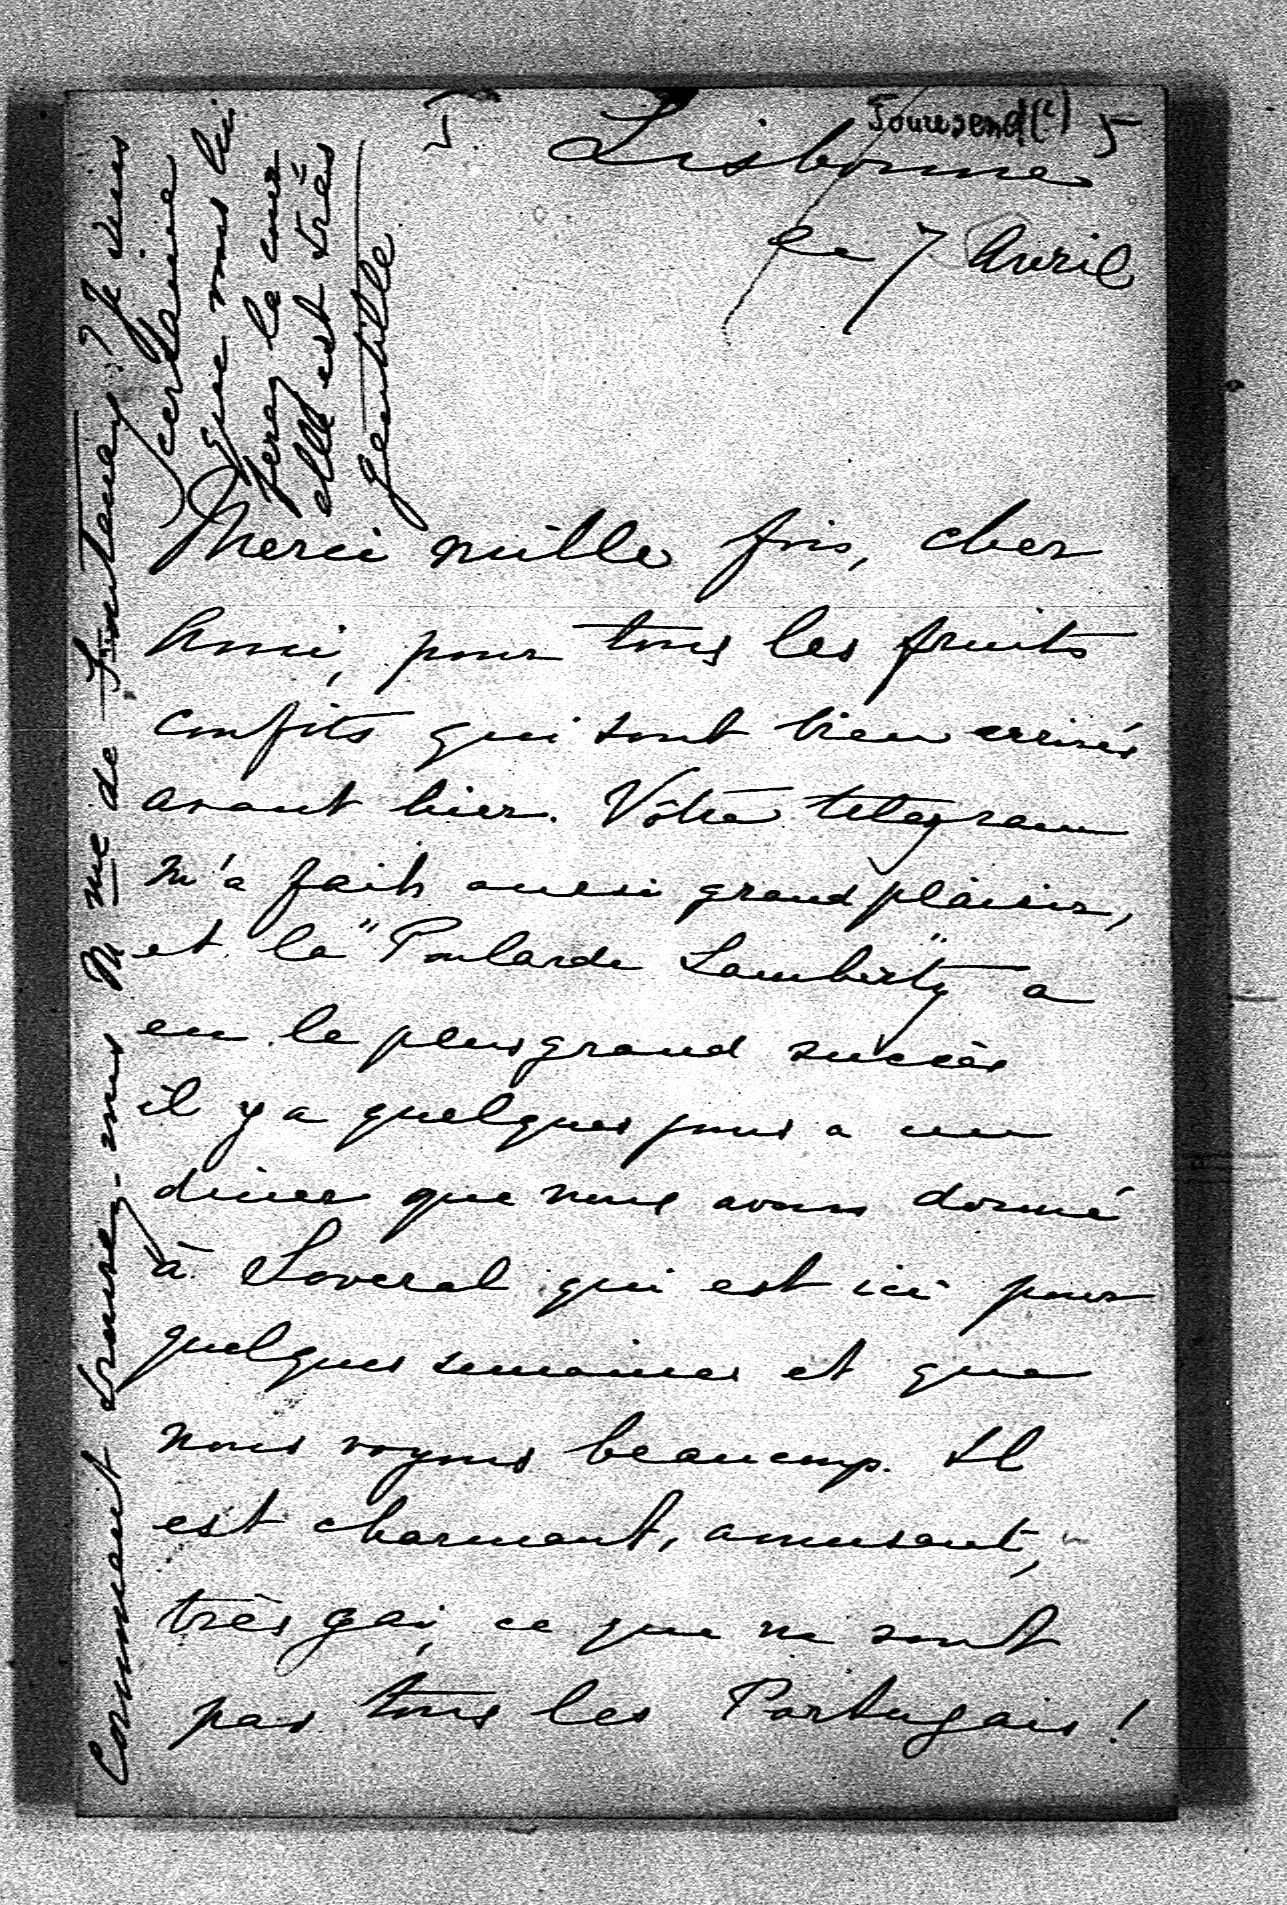 Townsend (C) 5
Lisbonne
le 7 Avril
Merci mille fois, cher
Ami, pour tous les fruits
confits qui sont bien arrivés
avant hier. Vôtre telegram
m'a fait aussi grand plaisir,
et la "Poularde Lamberty" a
eu le plus grand succès
il y a quelques jours a un
diner que nous avons donné
à Soveral qui est ici pour
quelques semaines et que
nous voyons beaucoup. Il
est charmant, amusant,
très gai, ce que ne sont
pas tous les Portugais!
Comment trouvez-vous Mme de Fontenay? Je suis
certaine
que vous lui
ferez la cour
elle est très
gentille